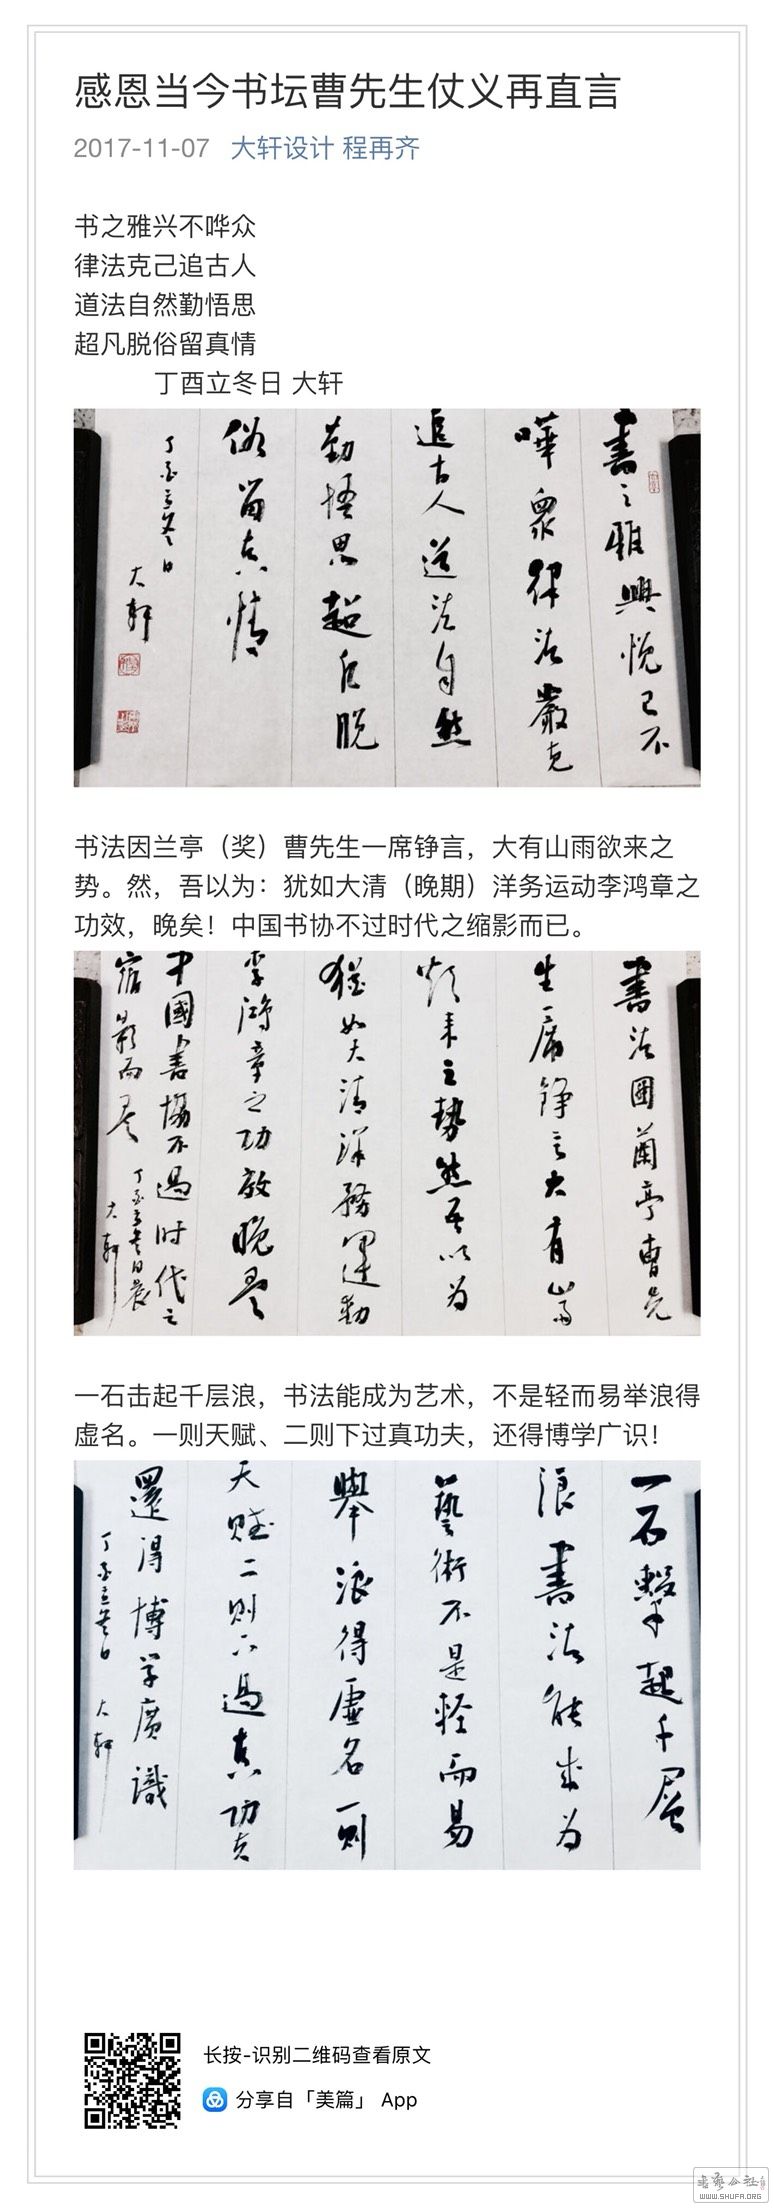 感恩当今书坛曹先生仗义再直言
2017-11-07 大轩设计 程再齐
书之雅兴不哗众
律法克己追古人
道法自然勤悟思
超凡脱俗留真情
丁酉立冬日 大轩
書之雅興悅己不
嘩衆律法嚴克
追古人道法自然
勤悟思超凡脱
俗留真情
丁酉立冬日
大軒
书法因兰亭（奖）曹先生一席铮言，大有山雨欲来之
势。然，吾以为：犹如大清（晚期）洋务运动李鸿章之
功效，晚矣！中国书协不过时代之缩影而已。
書法因蘭亭曹先
生一席錚言大有山雨
欲来之勢然吾以为
猶如大清洋務運動
李鴻章之功效晚矣
中國書協不過时代之
缩影而已
丁酉立冬日晨
大軒
一石击起千层浪，书法能成为艺术，不是轻而易举浪得
虚名。一则天赋、二则下过真功夫，还得博学广识！
一石擊起千层
浪書法能成为
藝術不是輕而易
舉浪得虛名一则
天赋二则下過真功夫
還得博学廣識
丁酉立冬日
大軒
长按-识别二维码查看原文
分享自「美篇」 App
书艺公社
WWW.SHUFA.ORG